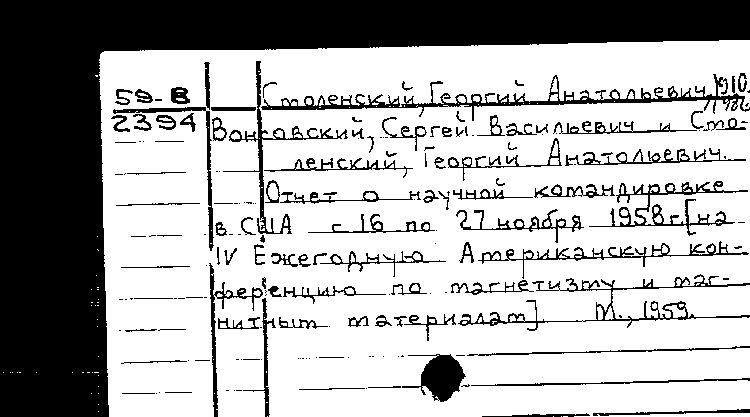 59-В Смоленский, Георгий Анатольевич, 1910.
2394 Вонсовский, Сергей Васильевич и Смо-
ленский, Георгий Анатольевич.
Отчет о научной командировке
в США с 16 по 27 ноября 1958 г. [на
IV Ежегодную Американскую кон-
ференцию по магнетизму и маг-
нитным материалам]. М., 1959.